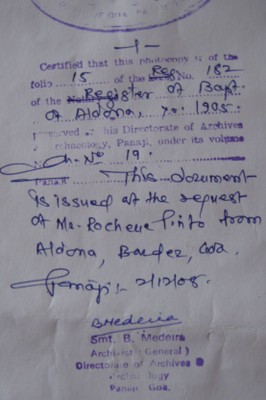 — 1 —
Certified that this photocopy is of the
folio 15 of the Reg No. 182
of the Register of Bapt.
of Aldona, 1905.
his Directorate of Archives
rchaeology, Panaji, under its volume
Ch. No 19.
This document
is issued at the request
of Mr. Pinto from
Aldona, Bardez, Goa.
Panaji:-
BMedeira
Smt. B. Medeira
Archivist (General)
Directorate of Archives
Panaji Goa.